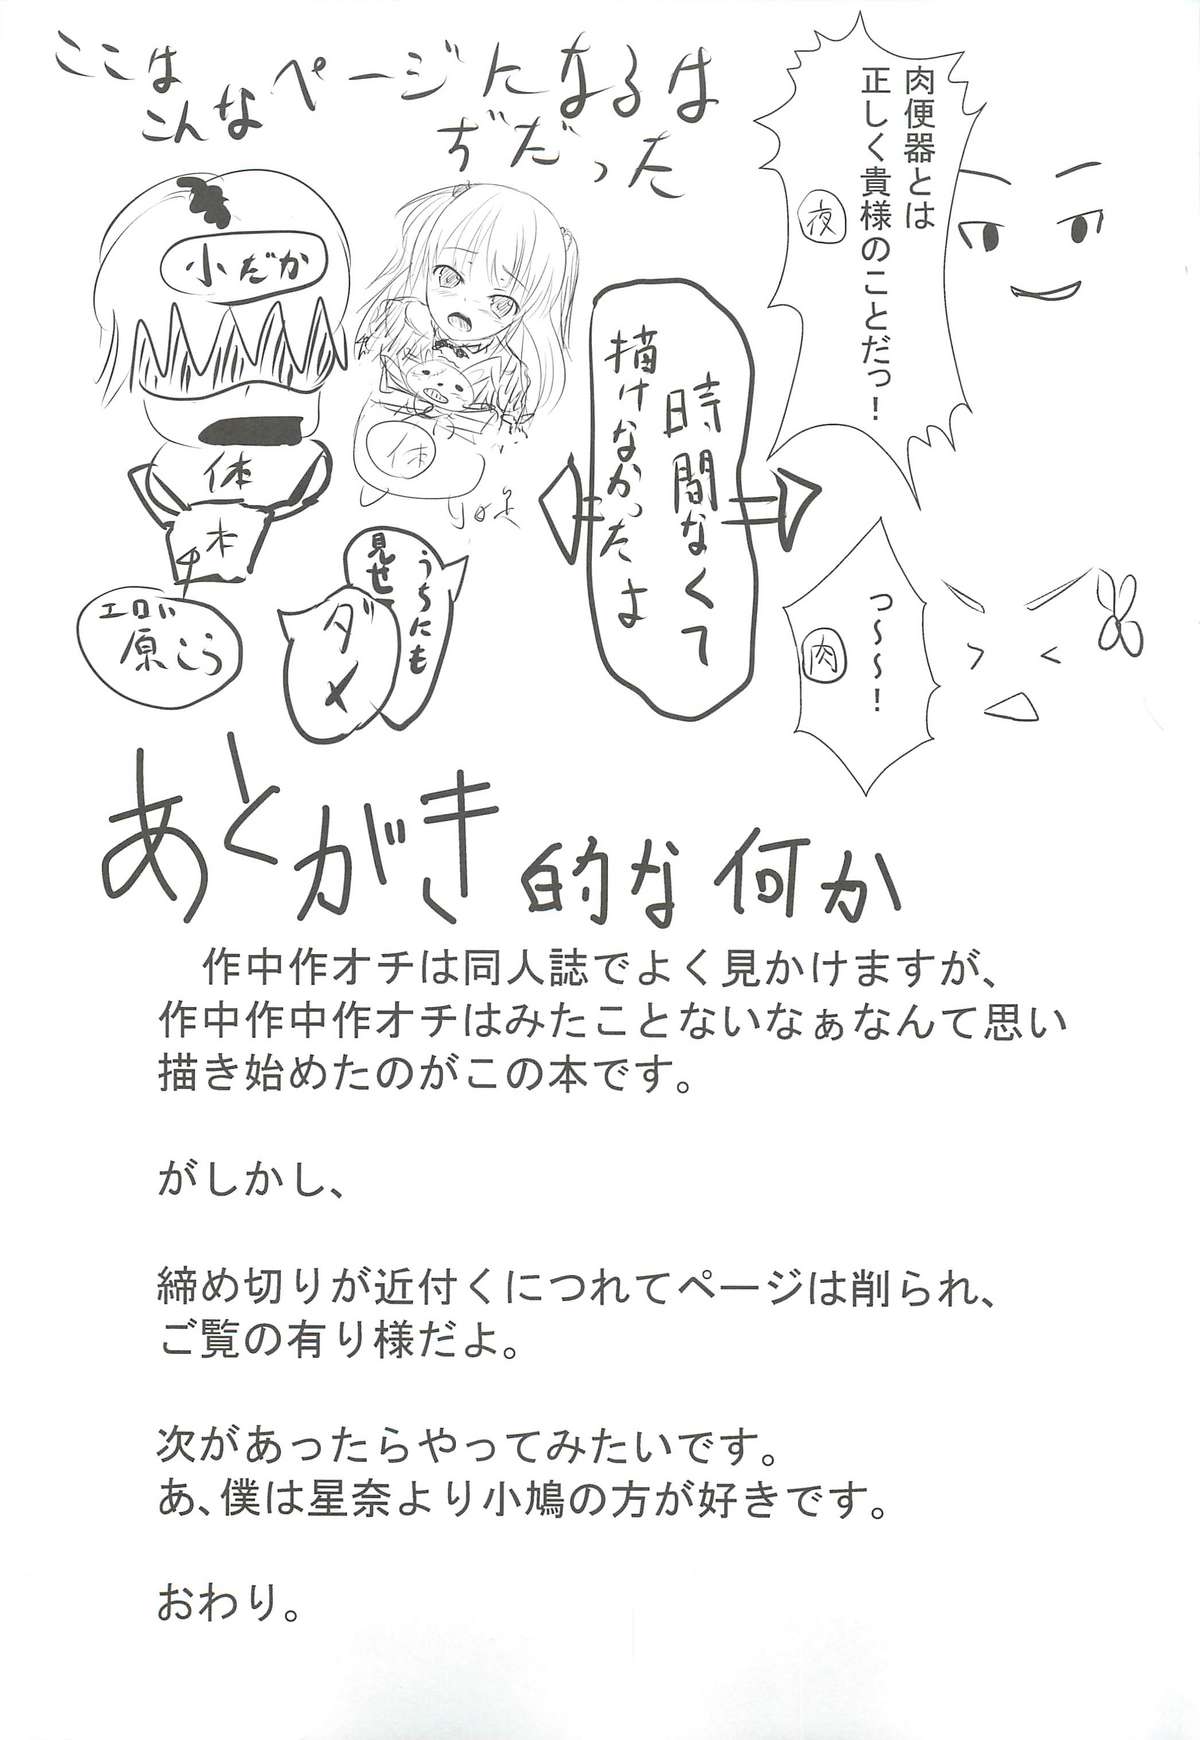 ここは
こんなページになるは
ずだった
肉便器とは
正しく貴様のことだっ！
夜
小だか
時間なくて
描けなかったよ
体
体
本
エロい
原こう
うちにも
見せ
ダメ
っ～～～！
肉
あとがき的な何か
作中作オチは同人誌でよく見かけますが、
作中作中作オチはみたことないなぁなんて思い
描き始めたのがこの本です。
がしかし、
締め切りが近付くにつれてページは削られ、
ご覧の有り様だよ。
次があったらやってみたいです。
あ、僕は星奈より小鳩の方が好きです。
おわり。